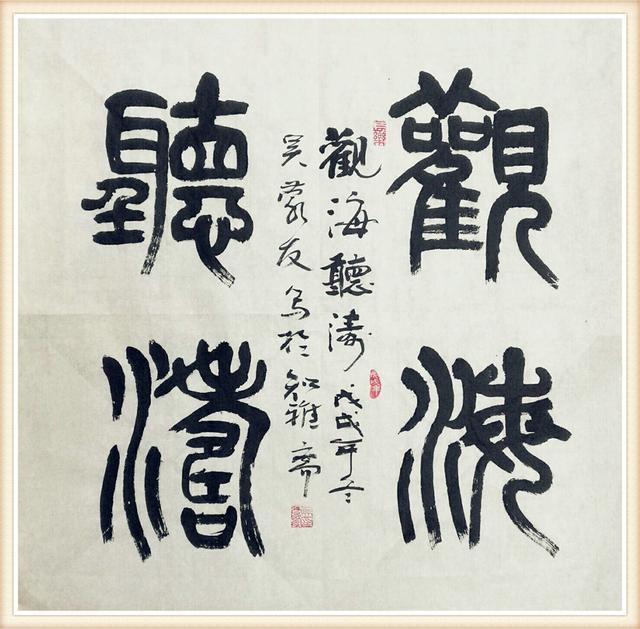 觀海
聽濤
觀海聽濤 戊戌年冬
吴蒙友写於知雅斋